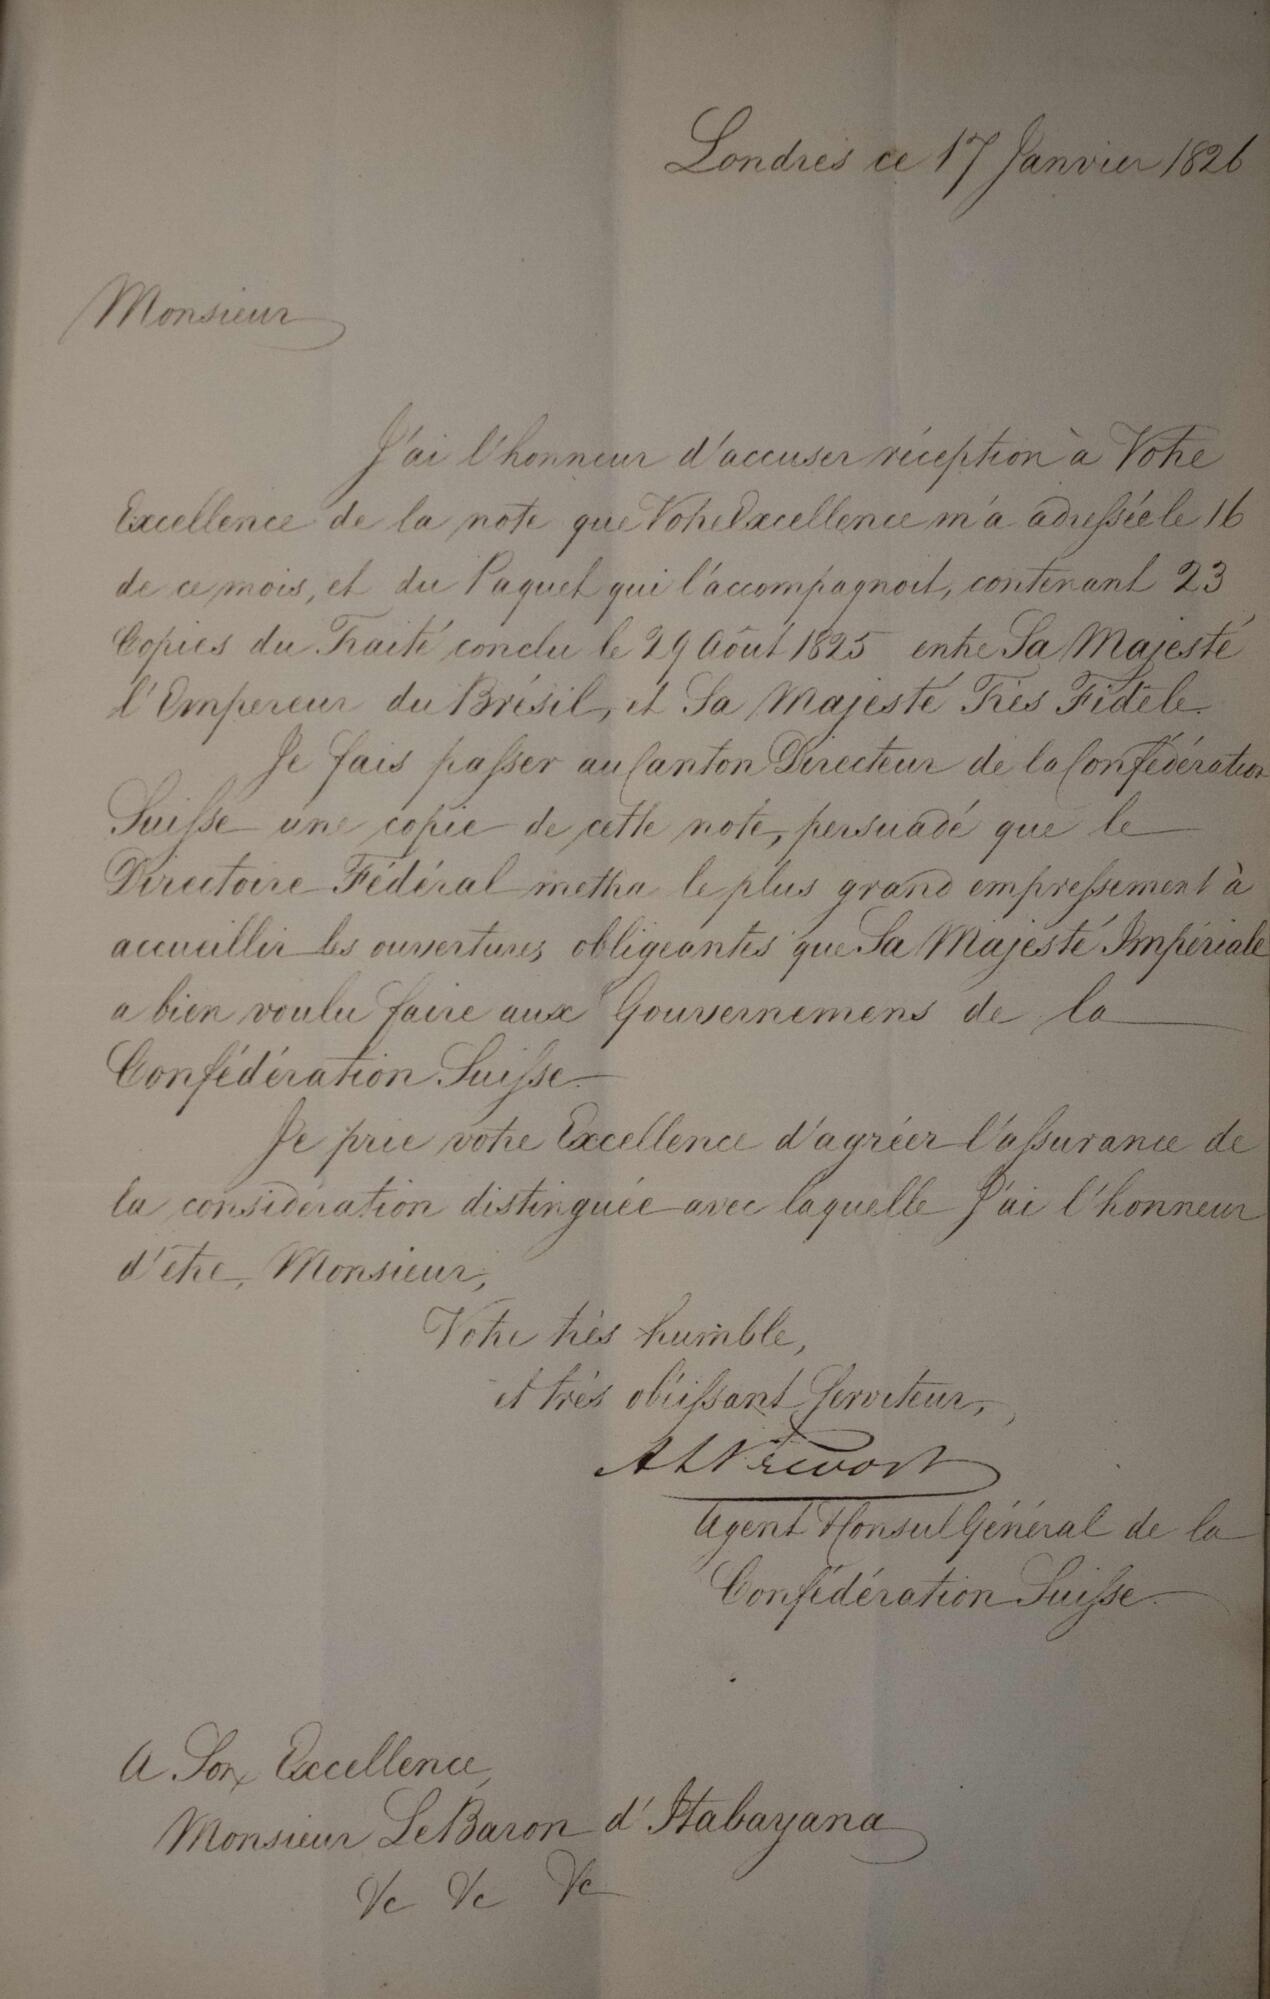 Londres ce 17 Janvier 1826
Monsieur
J'ai l'honneur d'accuser réception à Votre
Excellence de la note que Votre Excellence m'a adressée le 16
de ce mois, et du Paquet qui l'accompagnoit, contenant 23
Copies du Traité conclu le 29 Août 1825 entre Sa Majesté
l'Empereur du Brésil, et Sa Majesté Très Fidèle.
Je fais passer au Canton Directeur de la Confédération
Suisse une copie de cette note, persuadé que le
Directoire Fédéral mettra le plus grand empressement à
accueillir les ouvertures obligeantes que Sa Majesté Impériale
a bien voulu faire aux Gouvernemens de la
Confédération Suisse.
Je prie votre Excellence d'agréer l'assurance de
la considération distinguée avec laquelle J'ai l'honneur
d'etre, Monsieur,
Votre très humble,
et très obéissant Serviteur,
A L Prevost
Agent & Consul Général de la
Confédération Suisse.
A Son Excellence,
Monsieur Le Baron d'Itabayana
&c &c &c